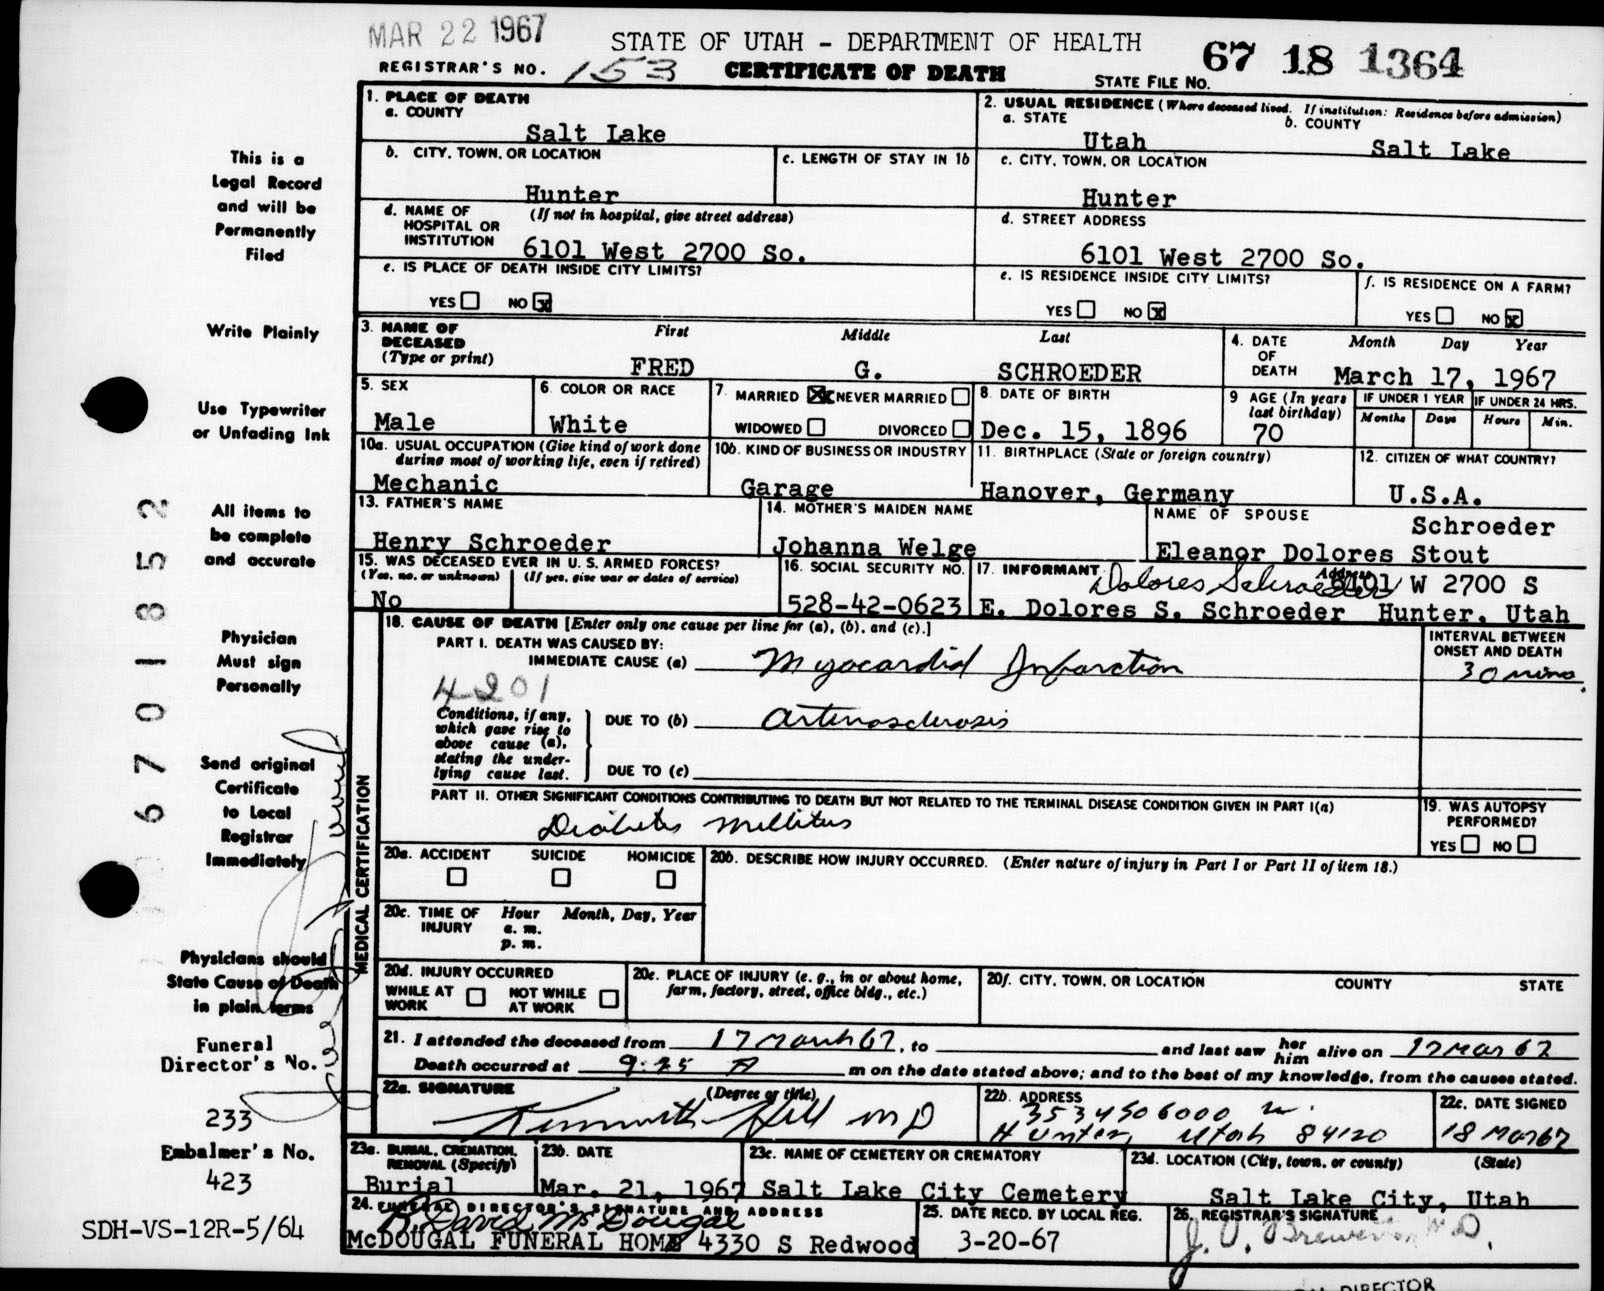 MAR 22 1967
STATE OF UTAH - DEPARTMENT OF HEALTH
67 18 1364
REGISTRAR'S NO. 153
CERTIFICATE OF DEATH
STATE FILE NO.
1. PLACE OF DEATH
a. COUNTY
Salt Lake
2. USUAL RESIDENCE (Where deceased lived. If institution: Residence before admission)
a. STATE
Utah
b. COUNTY
Salt Lake
b. CITY, TOWN, OR LOCATION
Hunter
c. LENGTH OF STAY IN 1b
c. CITY, TOWN, OR LOCATION
Hunter
d. NAME OF HOSPITAL OR INSTITUTION
(If not in hospital, give street address)
6101 West 2700 So.
d. STREET ADDRESS
6101 West 2700 So.
e. IS PLACE OF DEATH INSIDE CITY LIMITS?
YES NO x
e. IS RESIDENCE INSIDE CITY LIMITS?
YES NO x
f. IS RESIDENCE ON A FARM?
YES NO x
3. NAME OF DECEASED
(Type or print)
First Middle Last
FRED G. SCHROEDER
4. DATE OF DEATH
Month Day Year
March 17, 1967
5. SEX
Male
6. COLOR OR RACE
White
7. MARRIED x NEVER MARRIED
WIDOWED DIVORCED
8. DATE OF BIRTH
Dec. 15, 1896
9 AGE (In years last birthday)
70
IF UNDER 1 YEAR
Months Days
IF UNDER 24 HRS.
Hours Min.
10a. USUAL OCCUPATION (Give kind of work done during most of working life, even if retired)
Mechanic
10b. KIND OF BUSINESS OR INDUSTRY
Garage
11. BIRTHPLACE (State or foreign country)
Hanover, Germany
12. CITIZEN OF WHAT COUNTRY?
U.S.A.
13. FATHER'S NAME
Henry Schroeder
14. MOTHER'S MAIDEN NAME
Johanna Welge
NAME OF SPOUSE
Schroeder
Eleanor Dolores Stout
15. WAS DECEASED EVER IN U. S. ARMED FORCES?
(Yes, no, or unknown) (If yes, give war or dates of service)
No
16. SOCIAL SECURITY NO.
528-42-0623
17. INFORMANT
Dolores Schroeder
Address
6101 W 2700 S
E. Dolores S. Schroeder Hunter, Utah
MEDICAL CERTIFICATION
18. CAUSE OF DEATH [Enter only one cause per line for (a), (b), and (c).]
PART I. DEATH WAS CAUSED BY:
IMMEDIATE CAUSE (a) Myocardial Infarction
INTERVAL BETWEEN ONSET AND DEATH
30 mins.
4201
Conditions, if any, which gave rise to above cause (a), stating the underlying cause last.
DUE TO (b) arteriosclerosis
DUE TO (c)
PART II. OTHER SIGNIFICANT CONDITIONS CONTRIBUTING TO DEATH BUT NOT RELATED TO THE TERMINAL DISEASE CONDITION GIVEN IN PART I(a)
Diabetes mellitus
19. WAS AUTOPSY PERFORMED?
YES NO
20a. ACCIDENT SUICIDE HOMICIDE
20b. DESCRIBE HOW INJURY OCCURRED. (Enter nature of injury in Part I or Part II of item 18.)
20c. TIME OF INJURY
Hour Month, Day, Year
a. m.
p. m.
20d. INJURY OCCURRED
WHILE AT WORK NOT WHILE AT WORK
20e. PLACE OF INJURY (e. g., in or about home, farm, factory, street, office bldg., etc.)
20f. CITY, TOWN, OR LOCATION COUNTY STATE
21. I attended the deceased from 17 March 67, to and last saw her him alive on 17 Mar 67
Death occurred at 9:25 A m on the date stated above; and to the best of my knowledge, from the causes stated.
22a. SIGNATURE
(Degree or title)
Kenneth Hill MD
22b. ADDRESS
3534 So 6000 W.
Hunter, Utah 84120
22c. DATE SIGNED
18 Mar 67
23a. BURIAL, CREMATION, REMOVAL (Specify)
Burial
23b. DATE
Mar. 21, 1967
23c. NAME OF CEMETERY OR CREMATORY
Salt Lake City Cemetery
23d. LOCATION (City, town, or county) (State)
Salt Lake City, Utah
24. FUNERAL DIRECTOR'S SIGNATURE AND ADDRESS
R. David McDougal
McDOUGAL FUNERAL HOME 4330 S Redwood
25. DATE RECD. BY LOCAL REG.
3-20-67
26. REGISTRAR'S SIGNATURE
DIRECTOR
This is a
Legal Record
and will be
Permanently
Filed
Write Plainly
Use Typewriter
or Unfading Ink
All items to
be complete
and accurate
Physician
Must sign
Personally
Send original
Certificate
to Local
Registrar
Immediately
Physicians should
State Cause of Death
in plain terms
Funeral
Director's No.
233
Embalmer's No.
423
SDH-VS-12R-5/64
67018 52